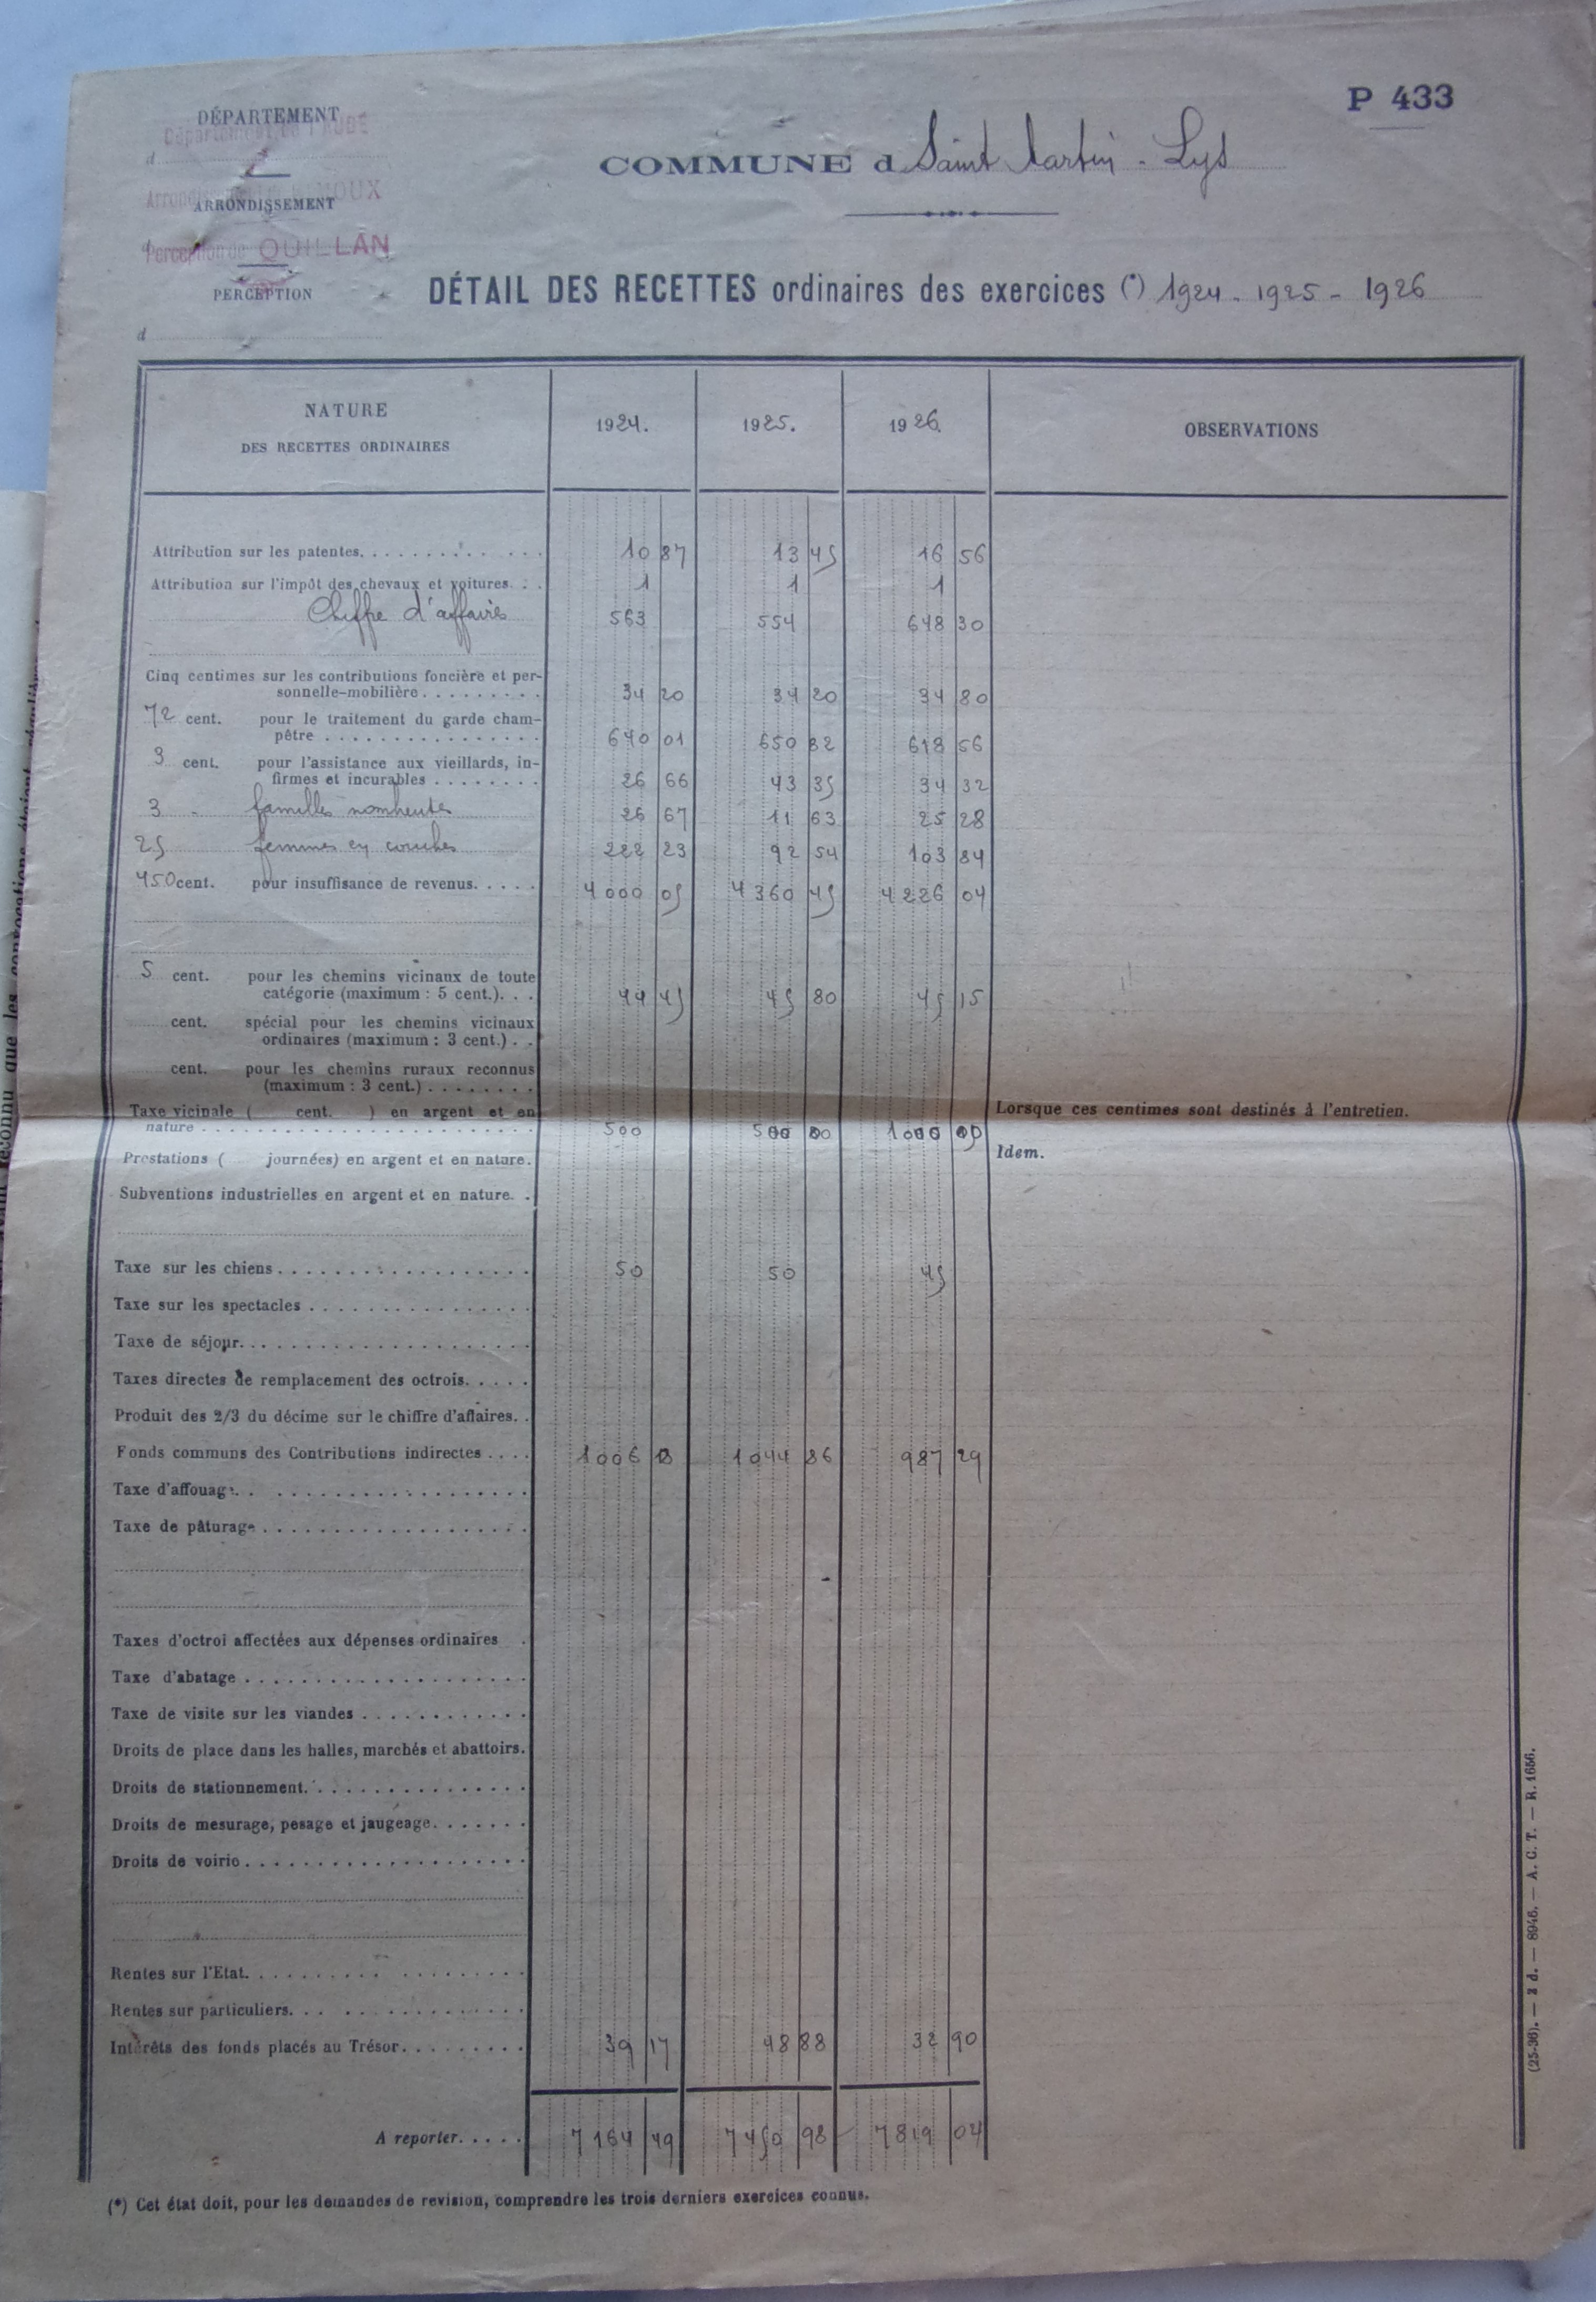 P 433
DÉPARTEMENT
Département de l'AUDE
d
COMMUNE d Saint Martin - Lys
Arrondissement de LIMOUX
ARRONDISSEMENT
d
Perception de QUILLAN
PERCEPTION
d
DÉTAIL DES RECETTES ordinaires des exercices (*) 1924 - 1925 - 1926
NATURE
DES RECETTES ORDINAIRES
1924. 1925. 1926. OBSERVATIONS
Attribution sur les patentes. 10 87 13 45 16 56
Attribution sur l'impôt des chevaux et voitures. 1 1 1
Chiffre d'affaires 563 554 648 30
Cinq centimes sur les contributions foncière et per-
sonnelle-mobilière 34 20 34 20 34 80
72 cent. pour le traitement du garde cham-
pêtre 640 01 650 82 618 56
3 cent. pour l'assistance aux vieillards, in-
firmes et incurables 26 66 43 35 34 32
3 - familles nombeuses 26 67 11 63 25 28
25 femmes en couches 222 23 92 54 103 84
450 cent. pour insuffisance de revenus. 4000 05 4360 45 4226 04
5 cent. pour les chemins vicinaux de toute
catégorie (maximum : 5 cent.). 44 45 45 80 45 15
cent. spécial pour les chemins vicinaux
ordinaires (maximum : 3 cent.)
cent. pour les chemins ruraux reconnus
(maximum : 3 cent.)
Taxe vicinale ( cent. ) en argent et en Lorsque ces centimes sont destinés à l'entretien.
nature 500 500 00 1000 00
Prestations ( journées) en argent et en nature. Idem.
Subventions industrielles en argent et en nature.
Taxe sur les chiens 50 50 45
Taxe sur les spectacles
Taxe de séjour.
Taxes directes de remplacement des octrois.
Produit des 2/3 du décime sur le chiffre d'affaires.
Fonds communs des Contributions indirectes 1006 18 1044 86 987 29
Taxe d'affouage.
Taxe de pâturage
Taxes d'octroi affectées aux dépenses ordinaires
Taxe d'abatage
Taxe de visite sur les viandes
Droits de place dans les halles, marchés et abattoirs.
Droits de stationnement.
Droits de mesurage, pesage et jaugeage.
Droits de voirie
Rentes sur l'Etat.
Rentes sur particuliers.
Intérêts des fonds placés au Trésor. 39 17 48 88 32 90
A reporter. 7164 49 7450 98 7819 04
(*) Cet état doit, pour les demandes de revision, comprendre les trois derniers exercices connus.
(25-36). — 2 d. — 8946. — A. C. T. — R. 1656.